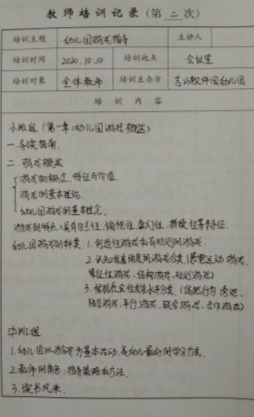 教师培训记录（第二次）
培训主题 幼儿园游戏指导 主讲人
培训时间 2020.10.10 培训地点 会议室
培训对象 全体教师 培训主办方 吉山软件园幼儿园
培训内容
小班组（第一章：幼儿园游戏概述）
一、导读指南.
二、游戏概述
游戏的概念、特征与价值.
游戏的基本理论.
幼儿园游戏的基本理念.
游戏的特点：具有自主性、愉悦性、虚幻性、 等特征.
幼儿园游戏的种类. 1. 创造性游戏和有规则的游戏.
2. 认知 游戏分类（ 游戏、
象征性游戏、结构游戏、规则游戏）
3. 根据社会性发展水平分类（ 、
独自游戏、平行游戏、联合游戏、合作游戏）
中班组
1. 幼儿园以游戏为基本活动，是幼儿最好的学习方式.
2. 教师的角色：指导策略和方法.
3.